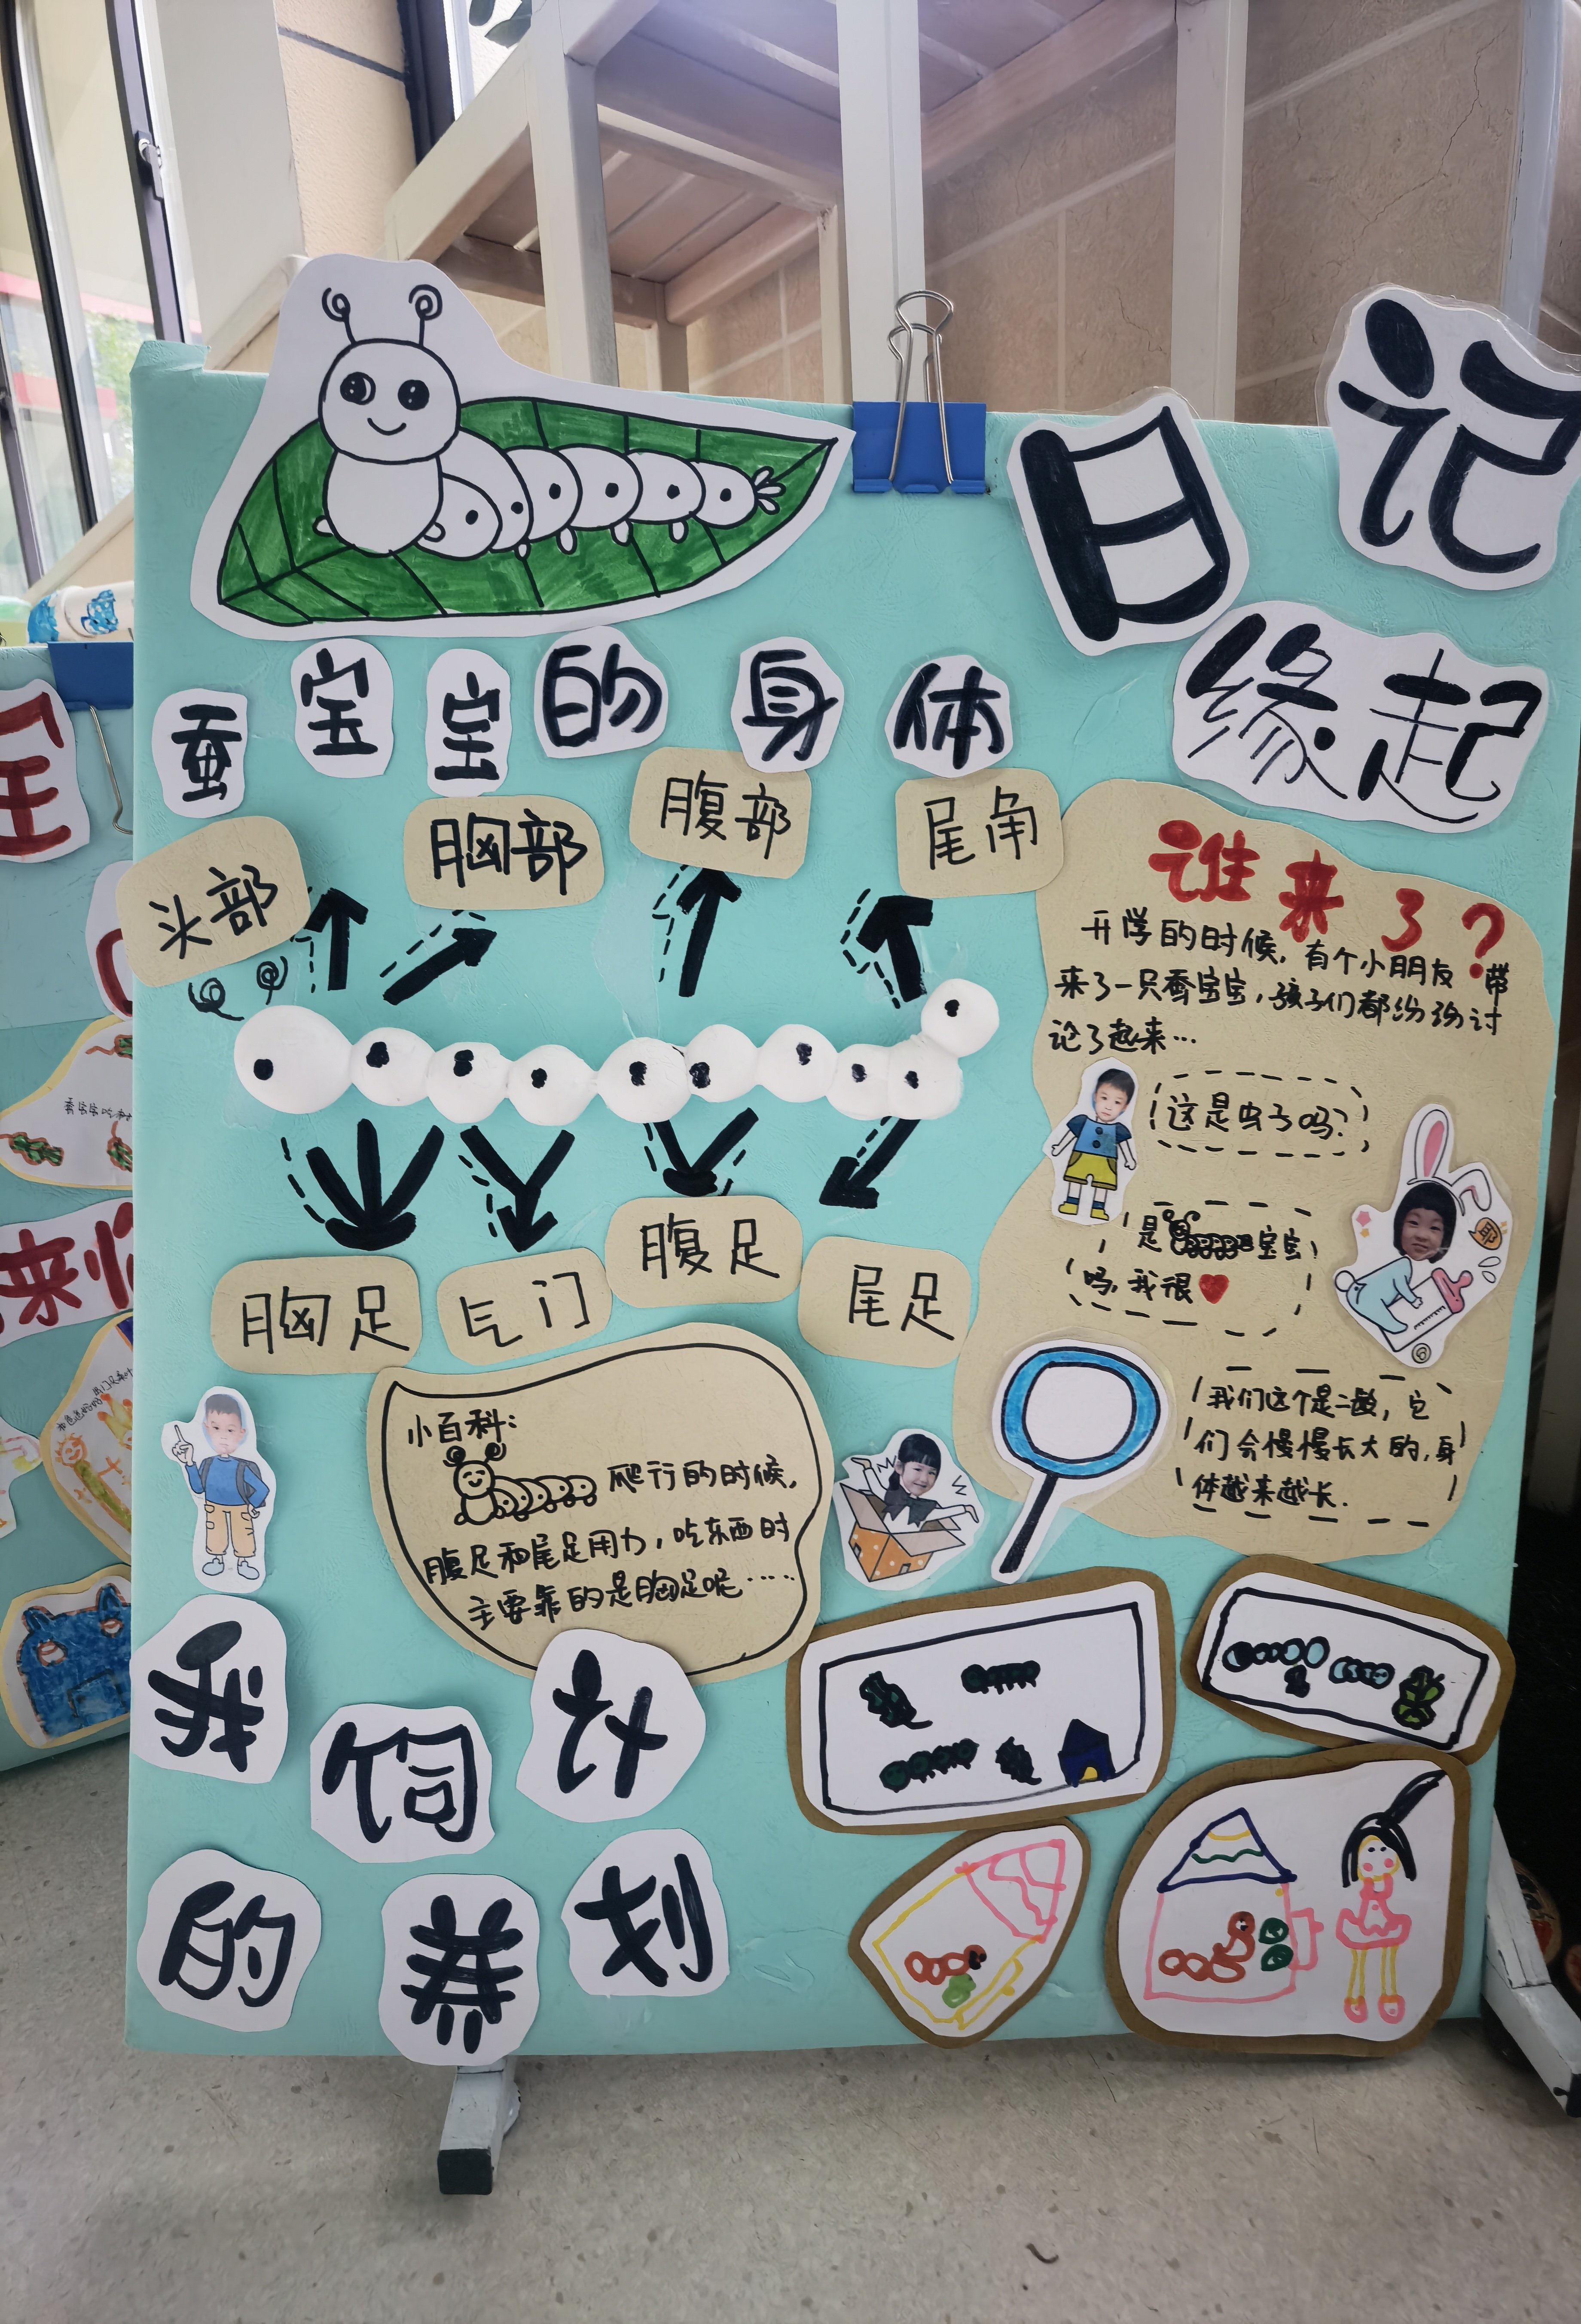 日记
缘起
蚕宝宝的身体
头部
胸部
腹部
尾角
胸足
气门
腹足
尾足
谁来了?
开学的时候,有个小朋友带
来了一只蚕宝宝,孩子们都纷纷讨
论了起来…
这是虫子吗?
是宝宝
吗,我很
耶
我们这个是二龄,它
们会慢慢长大的,身
体越来越长.
小百科:
爬行的时候,
腹足和尾足用力,吃东西时
主要靠的是胸足呢……
我的饲养计划
来